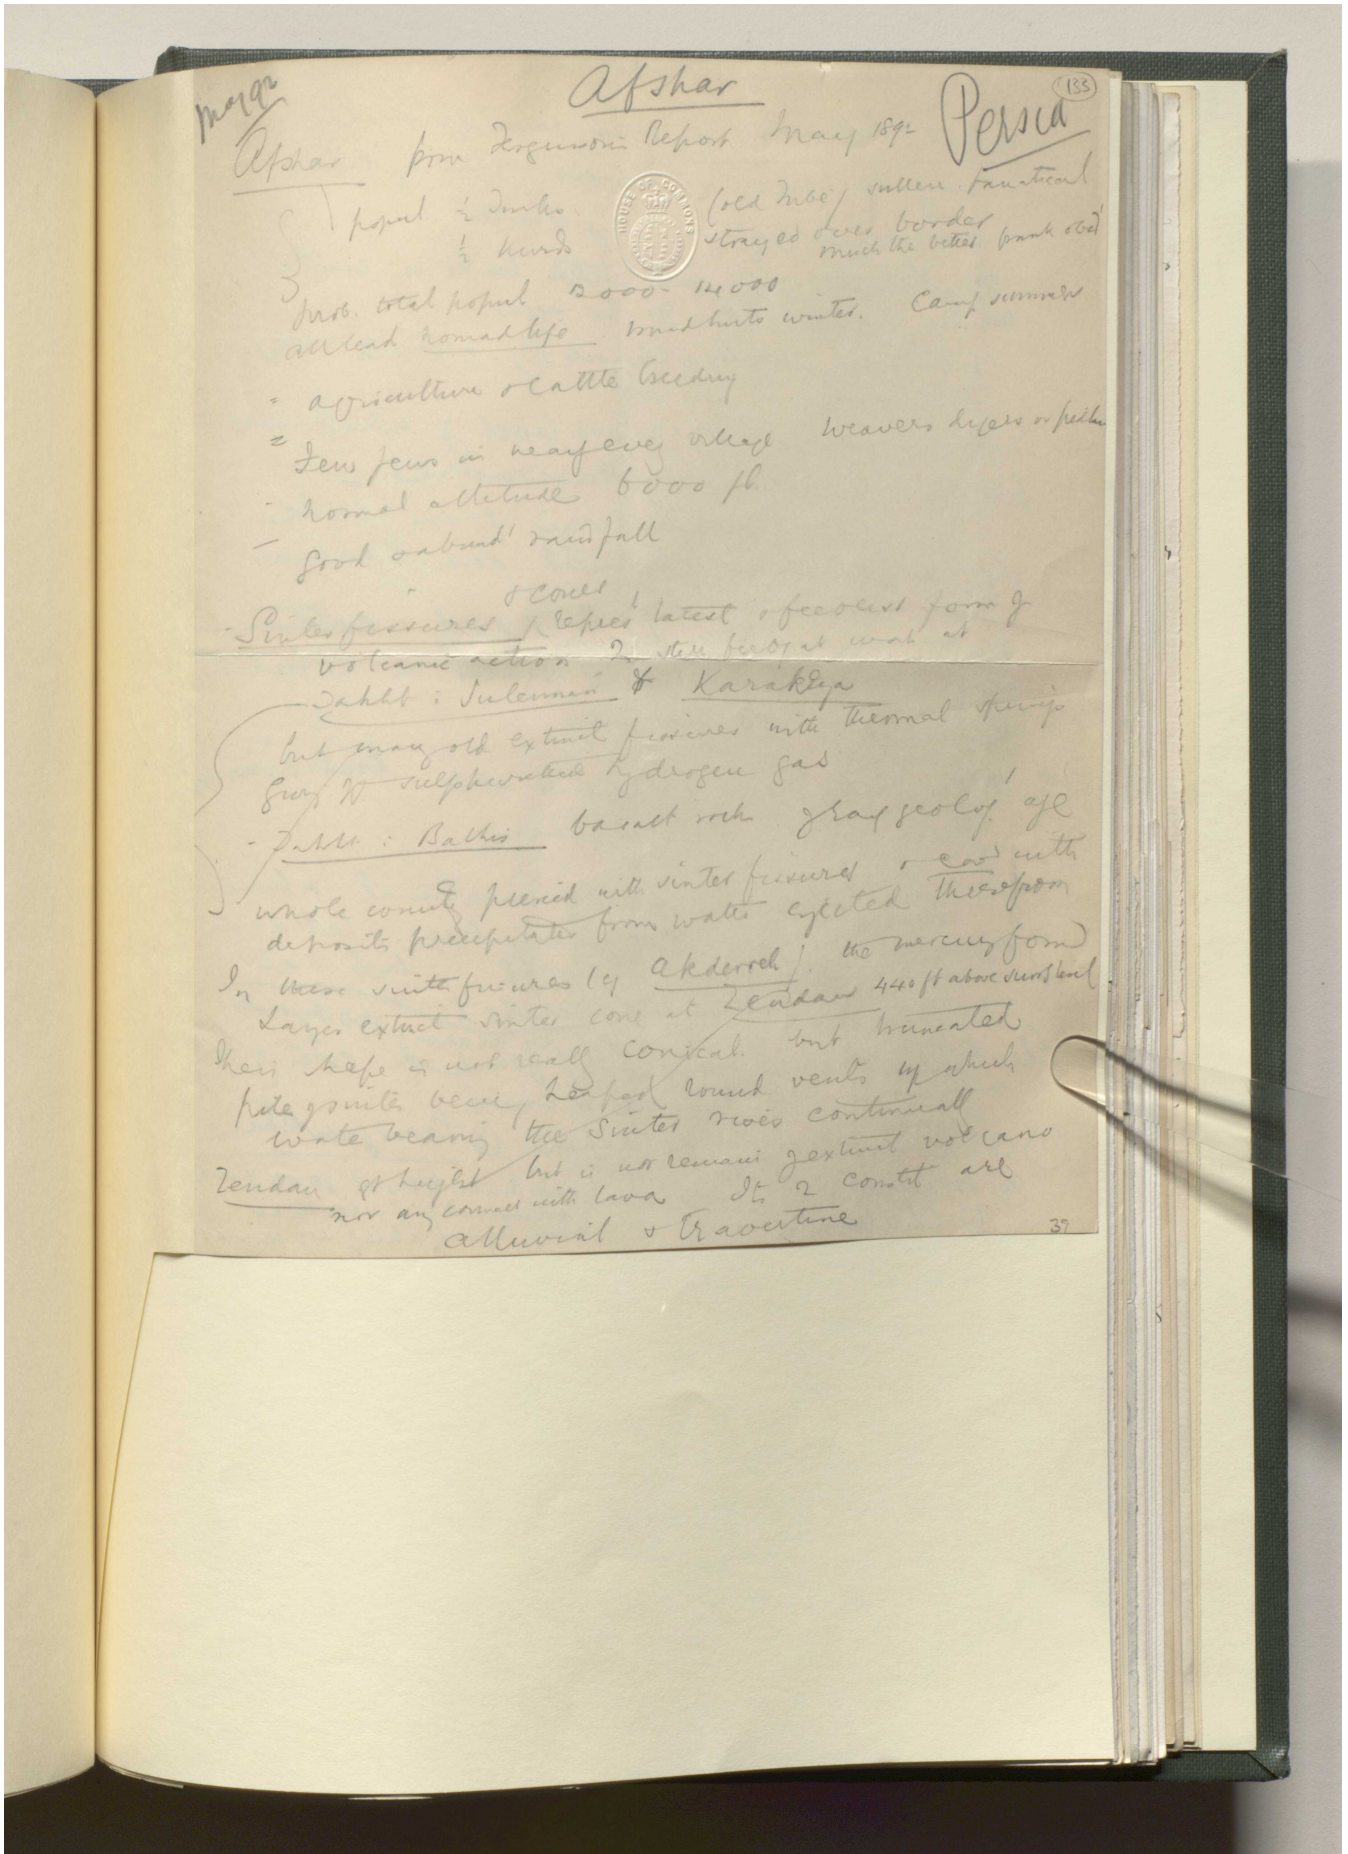 May 92
Afshar
133
Persia
Afshar from Fergusson's Report May 1892
popul ½ Turks (old Tribe) sullen. Fanatical
HOUSE OF COMMONS
½ Kurds strayed over border
much the better frank
prob. total popul 12000 - 14000
all lead nomad life mud huts winter. Camp summer
= agriculture & cattle breeding
= Few Jews in nearly every village weavers dyers or
- normal altitude 6000 ft
- good & abundt rainfall
& cones
- Sinter fissures repres latest & form of
volcanic action 2 still at work at
Takht i Suleiman & Karakaya
but many old extinct fissures with thermal springs
giving off sulphuretted hydrogen gas
- Takht i Balkis basalt rock of geolog. age
whole country pierced with sinter fissures & with
deposits precipitated from water ejected therefrom
In these fissures (eg Akderreh) the mercury found
Largest extinct sinter cone at Zendan 440 ft above level
Their shape is not really conical. but truncated
sinter being heaped round vents up which
water bearing the sinter rises continually
Zendan gt height but is not remains of extinct volcano
nor any connect with lava Its 2 constit are
alluvial & travertine
39